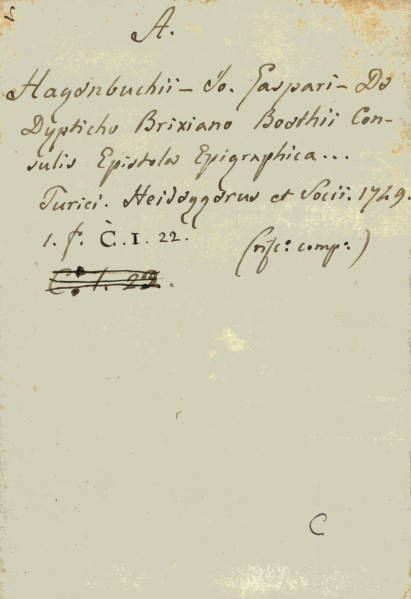 A.
Hagenbuchii - Jo. Gaspari - De
Dypticho Brixiano Boethii Con-
sulis Epistola Epigraphica...
Turici. Heideggerus et Socii. 1749.
1. f. C. I. 22.
C. 1. 22.
C